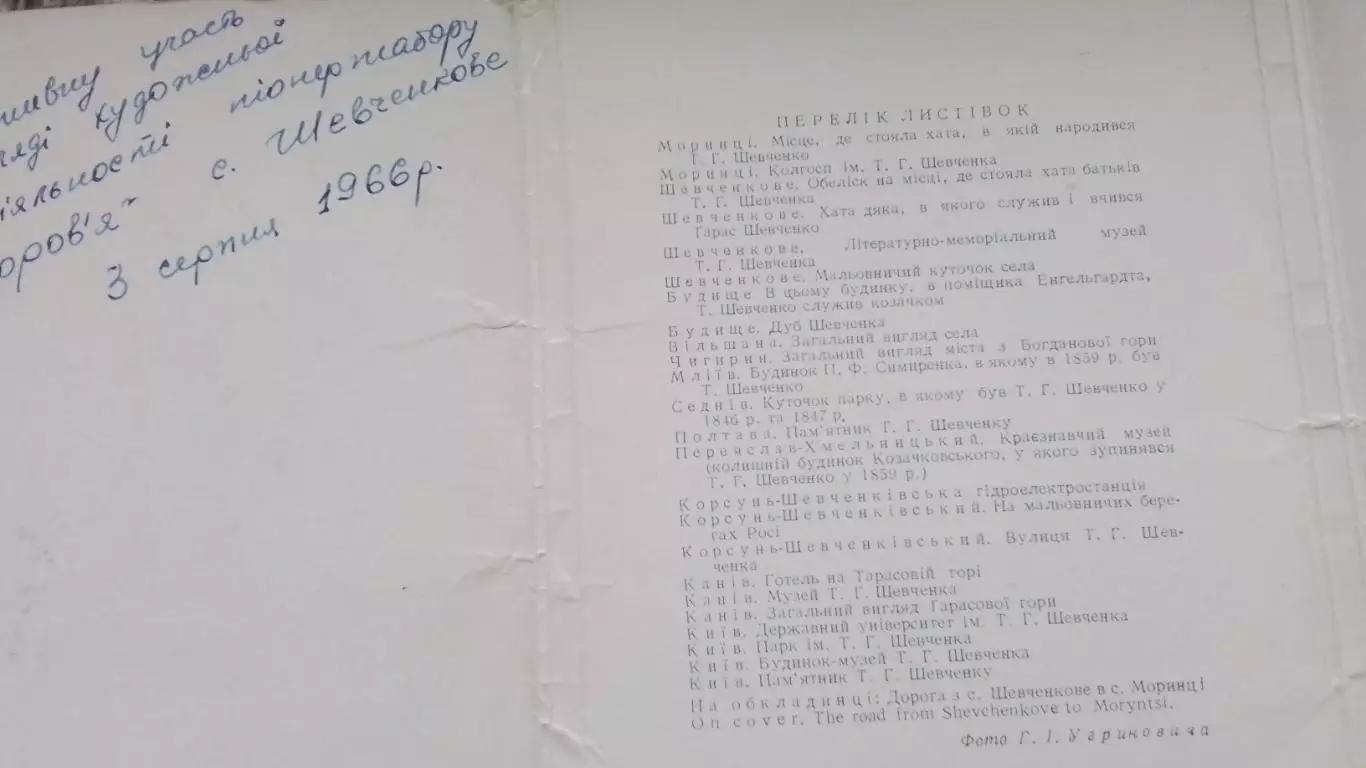 участь
художньої
піонертабору
с. Шевченкове
3 серпня 1966 р.
ПЕРЕЛІК ЛИСТІВОК
Моринці. Місце, де стояла хата, в якій народився
Т. Г. Шевченко
Моринці. Колгосп ім. Т. Г. Шевченка
Шевченкове. Обеліск на місці, де стояла хата батьків
Т. Г. Шевченка
Шевченкове. Хата дяка, в якого служив і вчився
Тарас Шевченко
Шевченкове. Літературно-меморіальний музей
Т. Г. Шевченка
Шевченкове. Мальовничий куточок села
Будище. В цьому будинку, в поміщика Енгельгардта,
Т. Шевченко служив козачком
Будище. Дуб Шевченка
Вільшана. Загальний вигляд села
Чигирин. Загальний вигляд міста з Богданової гори
Мліїв. Будинок П. Ф. Симиренка, в якому в 1859 р. був
Т. Шевченко
Седнів. Куточок парку, в якому був Т. Г. Шевченко у
1846 р. та 1847 р.
Полтава. Пам'ятник Т. Г. Шевченку
Переяслав-Хмельницький. Краєзнавчий музей
(колишній будинок Козачковського, у якого зупинявся
Т. Г. Шевченко у 1859 р.)
Корсунь-Шевченківська гідроелектростанція
Корсунь-Шевченківський. На мальовничих бере-
гах Росі
Корсунь-Шевченківський. Вулиця Т. Г. Шев-
ченка
Канів. Готель на Тарасовій горі
Канів. Музей Т. Г. Шевченка
Канів. Загальний вигляд Тарасової гори
Київ. Державний університет ім. Т. Г. Шевченка
Київ. Парк ім. Т. Г. Шевченка
Київ. Будинок-музей Т. Г. Шевченка
Київ. Пам'ятник Т. Г. Шевченку
На обкладинці: Дорога з с. Шевченкове в с. Моринці
On cover. The road from Shevchenkove to Moryntsi.
Фото Г. І. Угриновича